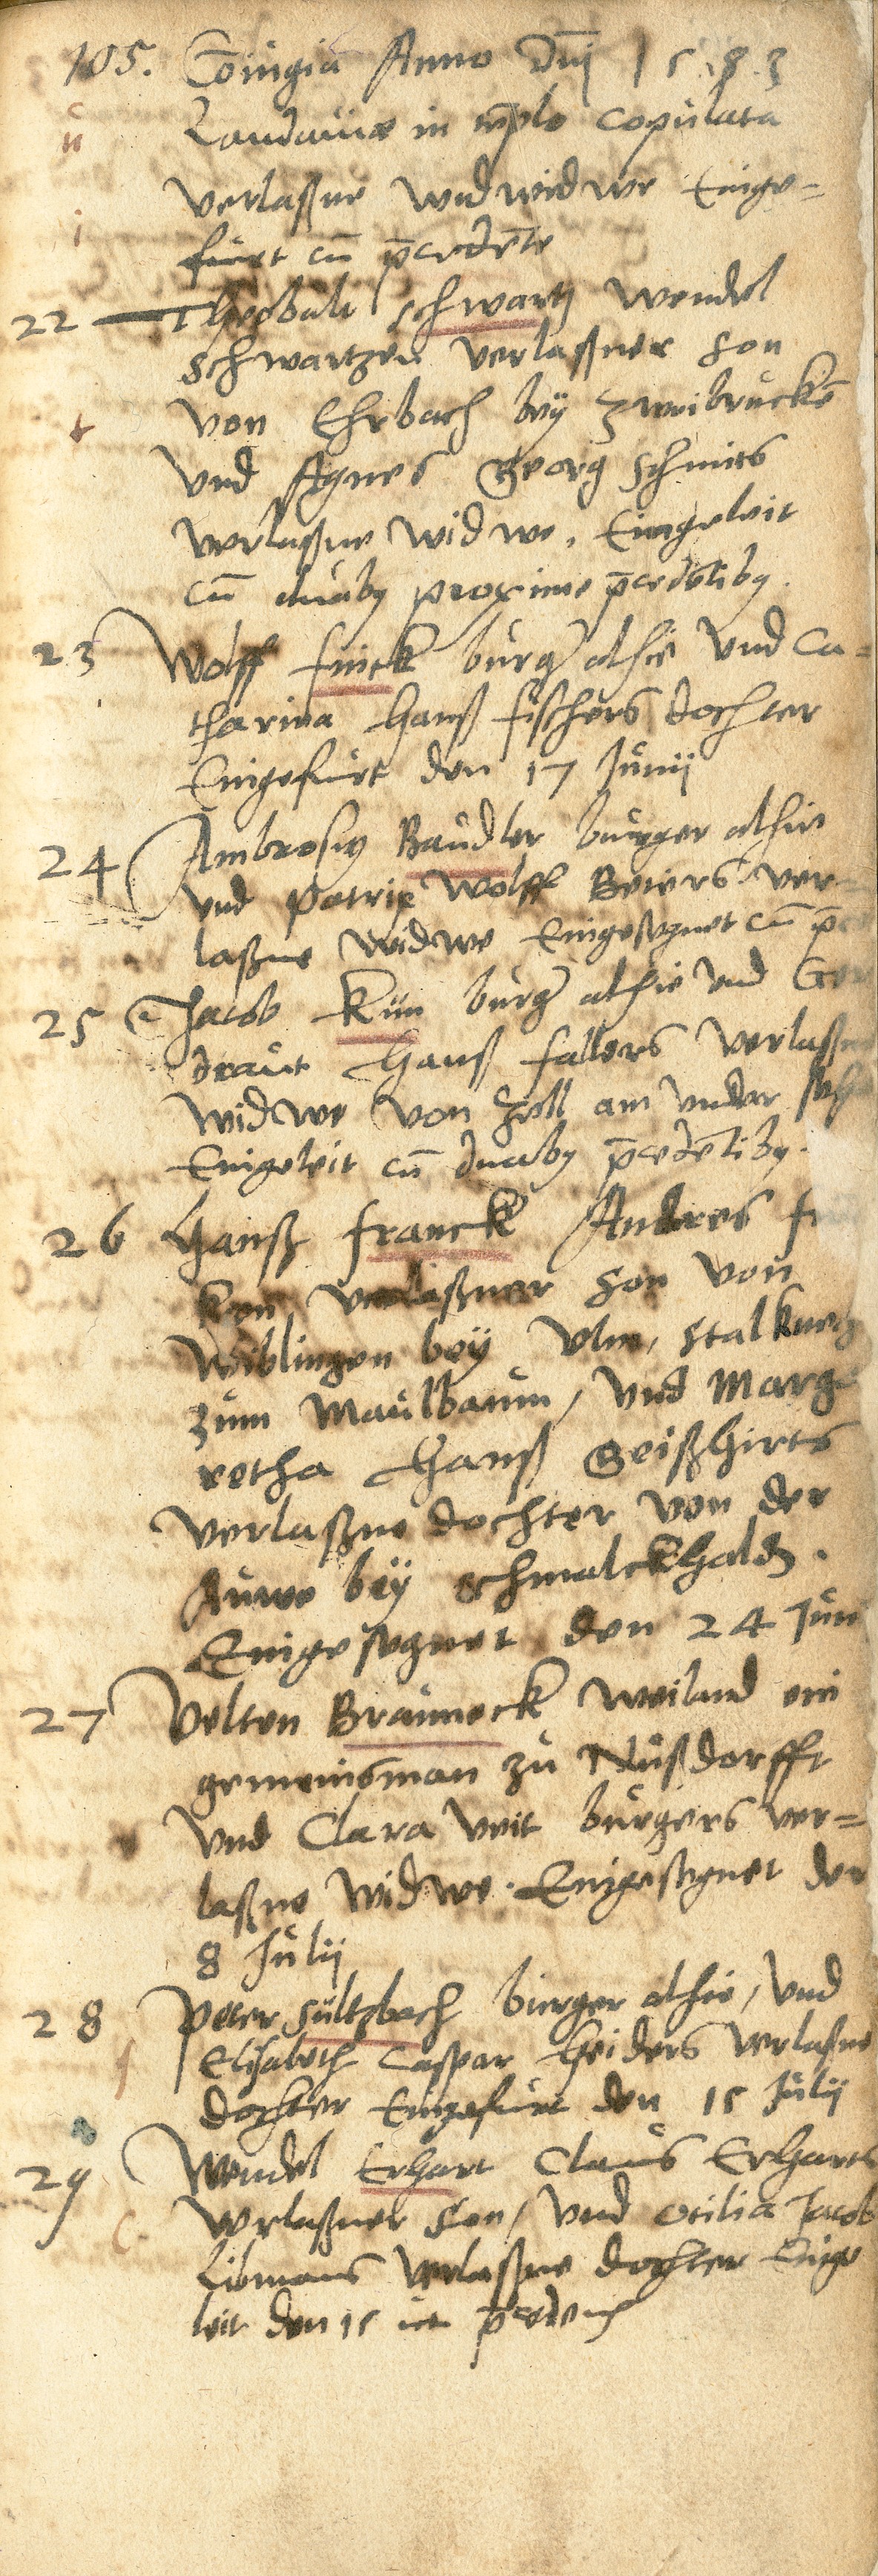 105. Coniugia Anno Dnj 1583
Landauiæ in templo copulata
verlaßne widwe Einge=
furt cu pcedete
22 Theobalt Schwartz Wendel
Schwartzen verlaßner son
von Ehrbach bey Zweibrucke
vnd Agnes Georg Schmits
verlaßne widwe. Eingeleit
cu duaby proxime pcedetiby.
23 Wolff Finck burger alhie vnd Ca=
tharina Hanß Fischers dochter
Eingefurt den 17 Junij
24 Ambrosiy Baudler burger alhie
vnd Patrix Wolff Beiers ver=
laßne widwe Eingesegnet cu
25 Jacob Kün burger alhie vnd Ger
draut Hanß Fallers verlaßne
widwe von Zell am vnder sehe
Eingeleit cu duaby pcedetiby.
26 Hanß Franck Andres
ken verlaßner son von
Wiblingen bey Vlm, stalknecht
zum Maulbaum, vnd Marga
retha Hanß Geißhirts
verlaßne dochter von der
Auwe bey Schmalckhald.
Eingesegnet den 24 Juni
27 Velten Brauneck weiland ein
gemeinsman zu Nußdorfft
vnd Clara Veit burgers ver=
laßne widwe. Eingesegnet den
8 Julij
28 Peter Sultzbach burger alhie, vnd
Elisabeth Caspar Heiders verlaßne
dochter Eingefurt den 15 Julij
29 Wendel Erhart Claus Erharts
verlaßner son, vnd Otilia Jacob
Libmans verlaßne dochter Einge
leit den 15 ut pcedens